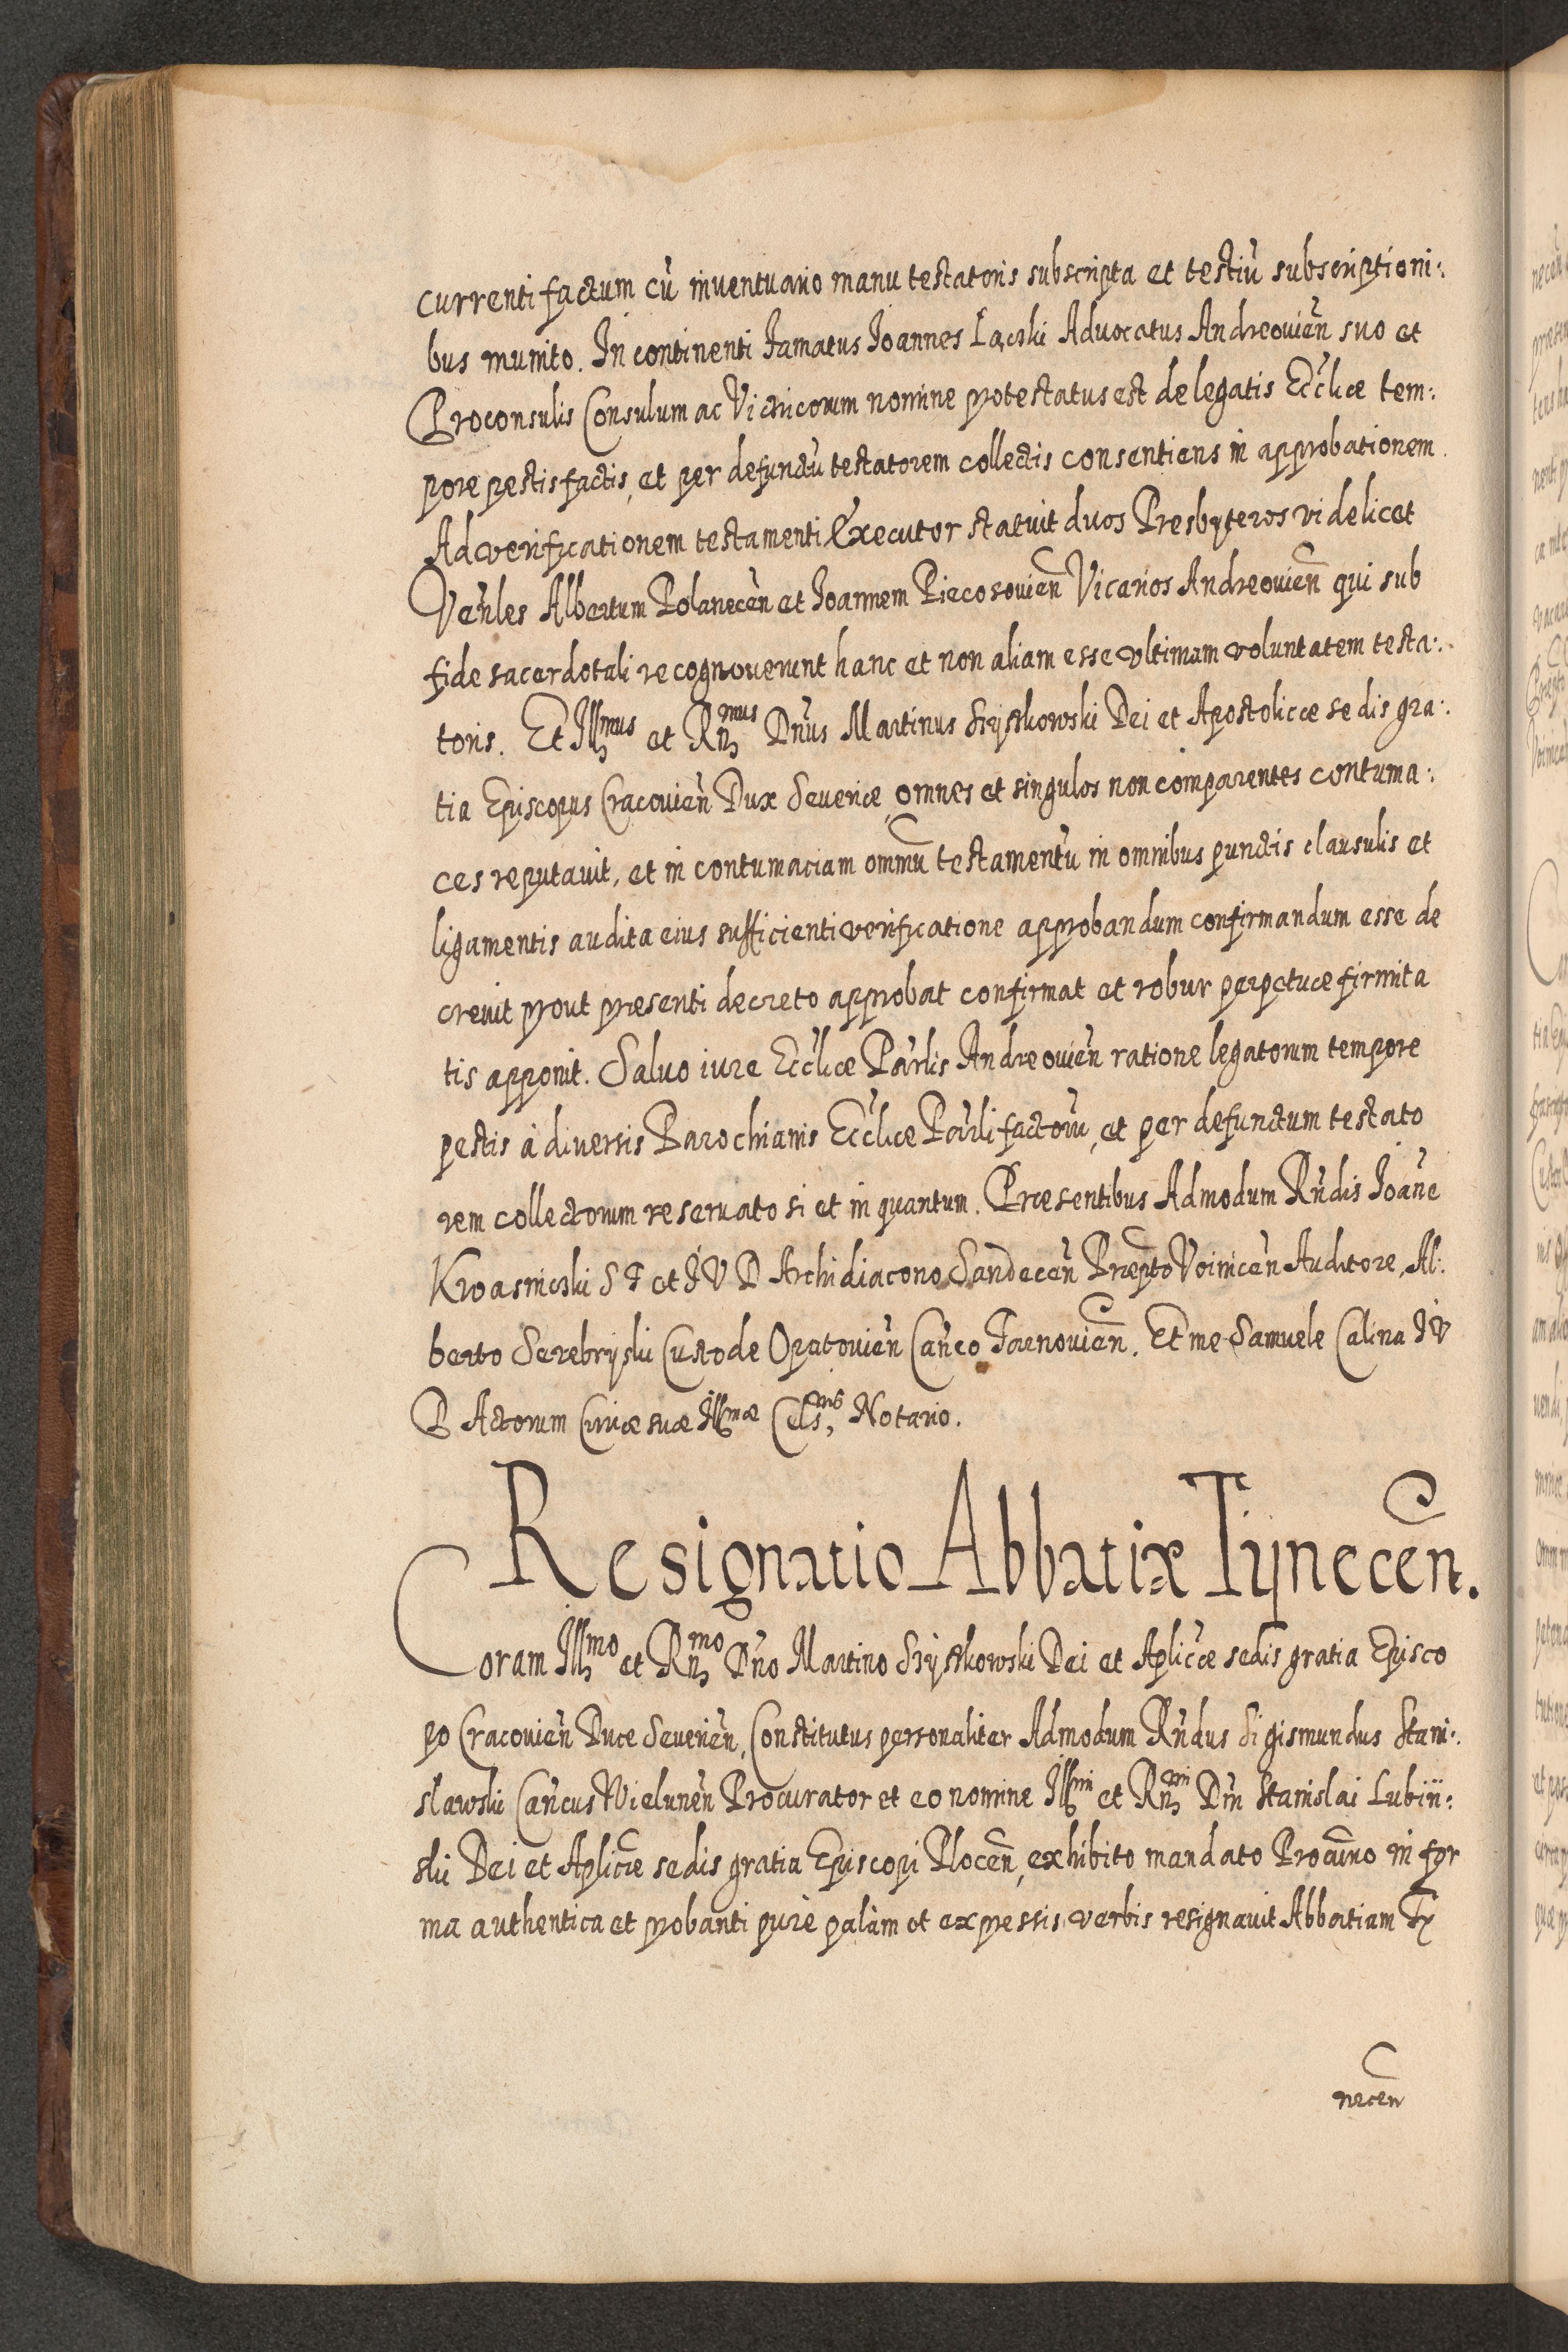 currenti factum cū inventuario manu testatoris subscripta et testiū subscriptioni:
bus munito. In continenti Famatus Ioannes Łącki Advocatus Andreovien̄ suo et
Proconsulis Consulum ac Vitricorum nomine protestatus est de legatis Eccłiæ tem:
pore pestis factis, et per defunctū testatorem collectis consentiens in approbationem.
Ad verificationem testamenti Executor statuit duos Presbyteros videlicet
Ven̄les Albertum Polanecen̄ et Ioannem Piecosovien̄ Vicarios Andreovien̄ qui sub
fide sacerdotali recognoverunt hanc et non aliam esse ultimam voluntatem testa:
toris. Et Ill̄mus et Rn̄mus Dn̄us Martinus Szyszkowski Dei et Apostolicæ sedis gra:
tia Episcopus Cracovien̄ Dux Severiæ, omnes et singulos non comparentes contuma:
ces reputavit, et in contumaciam omniū testamentū in omnibus punctis clausulis et
ligamentis audita eius sufficienti verificatione approbandum confirmandum esse de
crevit prout præsenti decreto approbat confirmat et robur perpetuæ firmita
tis apponit. Salvo iure Eccłiæ Par̄lis Andreovien̄ ratione legatorum tempore
pestis à diversis Parochianis Eccłiæ Par̄li factorū, et per defunctum testato
rem collectorum reservato si et in quantum. Præsentibus Admodum Rn̄dis Ioan̄e
Krasnicki S T et I V D Archidiacono Sandecen̄ Præpto Voinicen̄ Auditore, Al:
berto Serebryski Custode Opatovien̄ Can̄co Tarnovien̄. Et me Samuele Calina I V
D Actorum Curiæ suæ Ill̄mæ Cels̄nis Notario.
Resignatio Abbatiæ Tynecen̄.
Coram Ill̄mo et Rn̄mo Dn̄o Martino Szyszkowski Dei et Aplicæ sedis gratia Episco
po Cracovien̄ Duce Severien̄, Constitutus personaliter Admodum Rn̄dus Sigismundus Stani:
slawski Can̄cus Wielunen̄ Procurator et eo nomine Ill̄mi et Rn̄mi Dn̄i Stanislai Lubiń:
ski Dei et Aplicæ sedis gratia Episcopi Plocen̄, exhibito mandato Procūrio in for
ma authentica et probanti purè palàm et expressis verbis resignavit Abbatiam Ty
necen̄